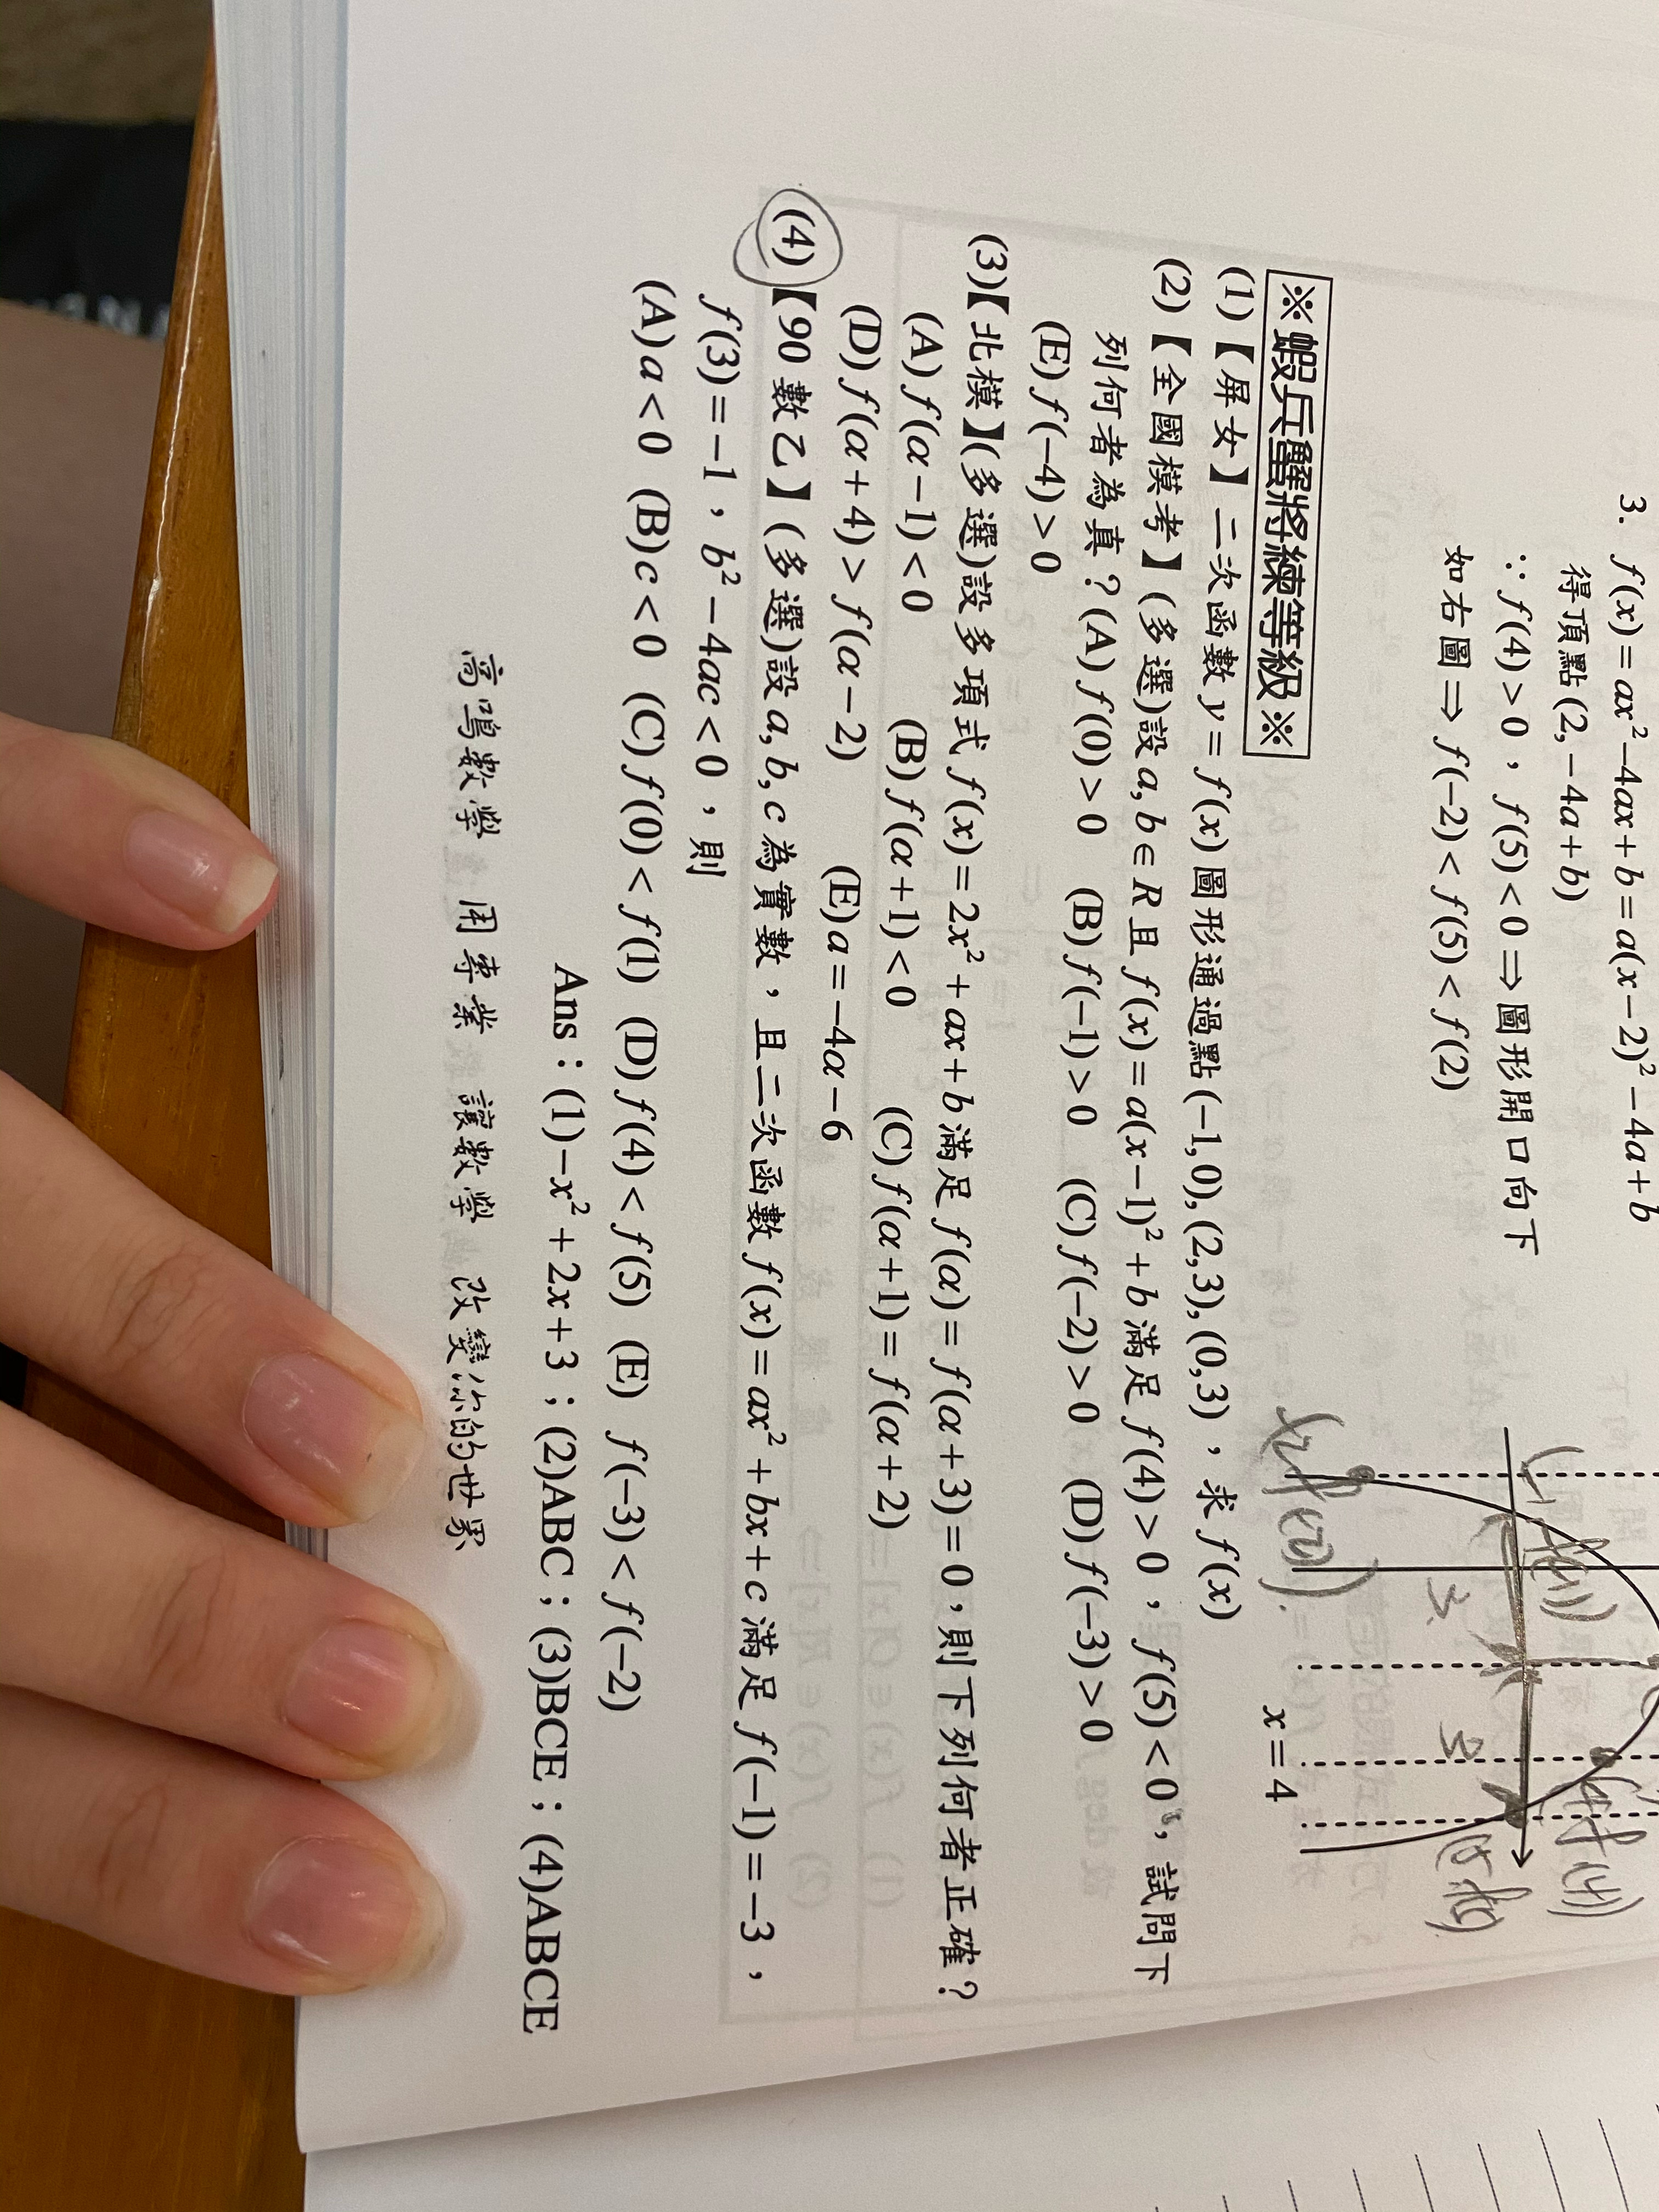 3. f(x)=ax²-4ax+b=a(x-2)²-4a+b
得頂點(2,-4a+b)
∵f(4)>0，f(5)<0⇒圖形開口向下
如右圖⇒f(-2)<f(5)<f(2)
x=4
※蝦兵蟹將練等級※
(1)【屏女】二次函數y=f(x)圖形通過點(-1,0),(2,3),(0,3)，求f(x)
(2)【全國模考】(多選)設a,b∈R且f(x)=a(x-1)²+b滿足f(4)>0，f(5)<0，試問下
列何者為真？(A)f(0)>0 (B)f(-1)>0 (C)f(-2)>0 (D)f(-3)>0
(E)f(-4)>0
(3)【北模】(多選)設多項式f(x)=2x²+ax+b滿足f(α)=f(α+3)=0，則下列何者正確？
(A)f(α-1)<0 (B)f(α+1)<0 (C)f(α+1)=f(α+2)
(D)f(α+4)>f(α-2) (E)a=-4α-6
(4)【90數乙】(多選)設a,b,c為實數，且二次函數f(x)=ax²+bx+c滿足f(-1)=-3，
f(3)=-1，b²-4ac<0，則
(A)a<0 (B)c<0 (C)f(0)<f(1) (D)f(4)<f(5) (E) f(-3)<f(-2)
Ans：(1)-x²+2x+3；(2)ABC；(3)BCE；(4)ABCE
高鳴數學 用專業 讓數學 改變你的世界